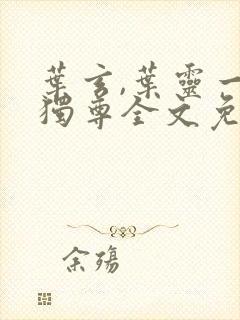 葉玄,葉靈一
獨尊全文免
余殤